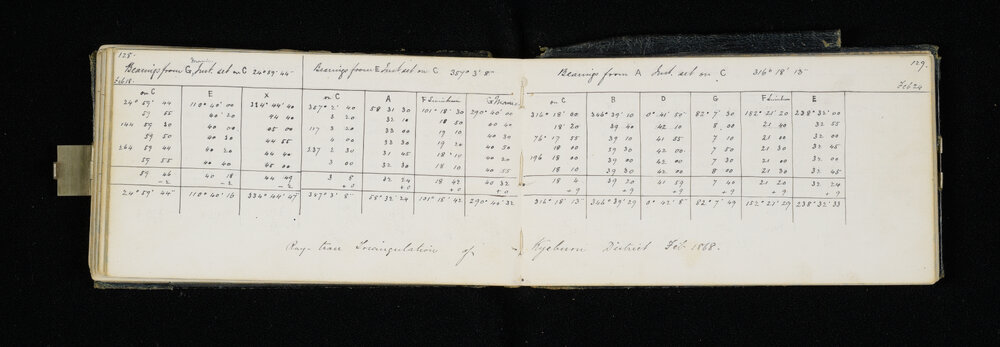 125.
Bearings from G, Inst. set on C 24° 59' 44"
Feb 18
on C E X
24° 59' 44 110° 40' 00 334° 44' 40
59 55 40 20 44 40
144 59 30 40 00 45 00
59 50 40 30 44 55
264 59 44 40 20 44 40
59 55 40 40 45 00
59 46 40 18 44 49
-2 -2 -2
24° 59' 44" 110° 40' 16 334° 44' 47
Bearings from E Inst. set on C 357° 3' 8"
on C A
357° 2' 40 58 31 30 101° 18' 30 290° 40' 00
3 20 32 10 18 50 40 40
117 3 20 33 00 19 10 40 30
4 00 33 30 19 20 40 50
237 2 30 31 45 18 10 40 20
3 00 32 30 18 10 40 55
3 8 32 24 18 42 40 32
+0 +0 +0 +0
357° 3' 8" 58° 32' 24 101° 18' 42 290° 40' 32
129.
Bearings from A Inst. set on C 316° 18' 13"
Feb 24
on C B D G E
316° 18' 00 346° 39' 10 0° 41' 50 82° 7' 30 152° 21' 20 238° 32' 00
18 20 39 40 42 10 8 00 21 40 32 55
76° 17 55 39 10 41 55 7 10 21 45 32 05
18 00 39 30 42 00 7 50 21 30 32 45
196 18 00 39 00 42 00 7 30 21 00 32 00
18 10 39 30 42 00 8 00 21 30 32 45
18 4 39 20 41 59 7 40 21 20 32 24
+9 +9 +9 +9 +9 +9
316° 18' 13 346° 39' 29 0° 42' 8 82° 7' 49 152° 21' 29 238° 32' 33
Ray-trace Triangulation of Kyeburn District Feb. 1868.